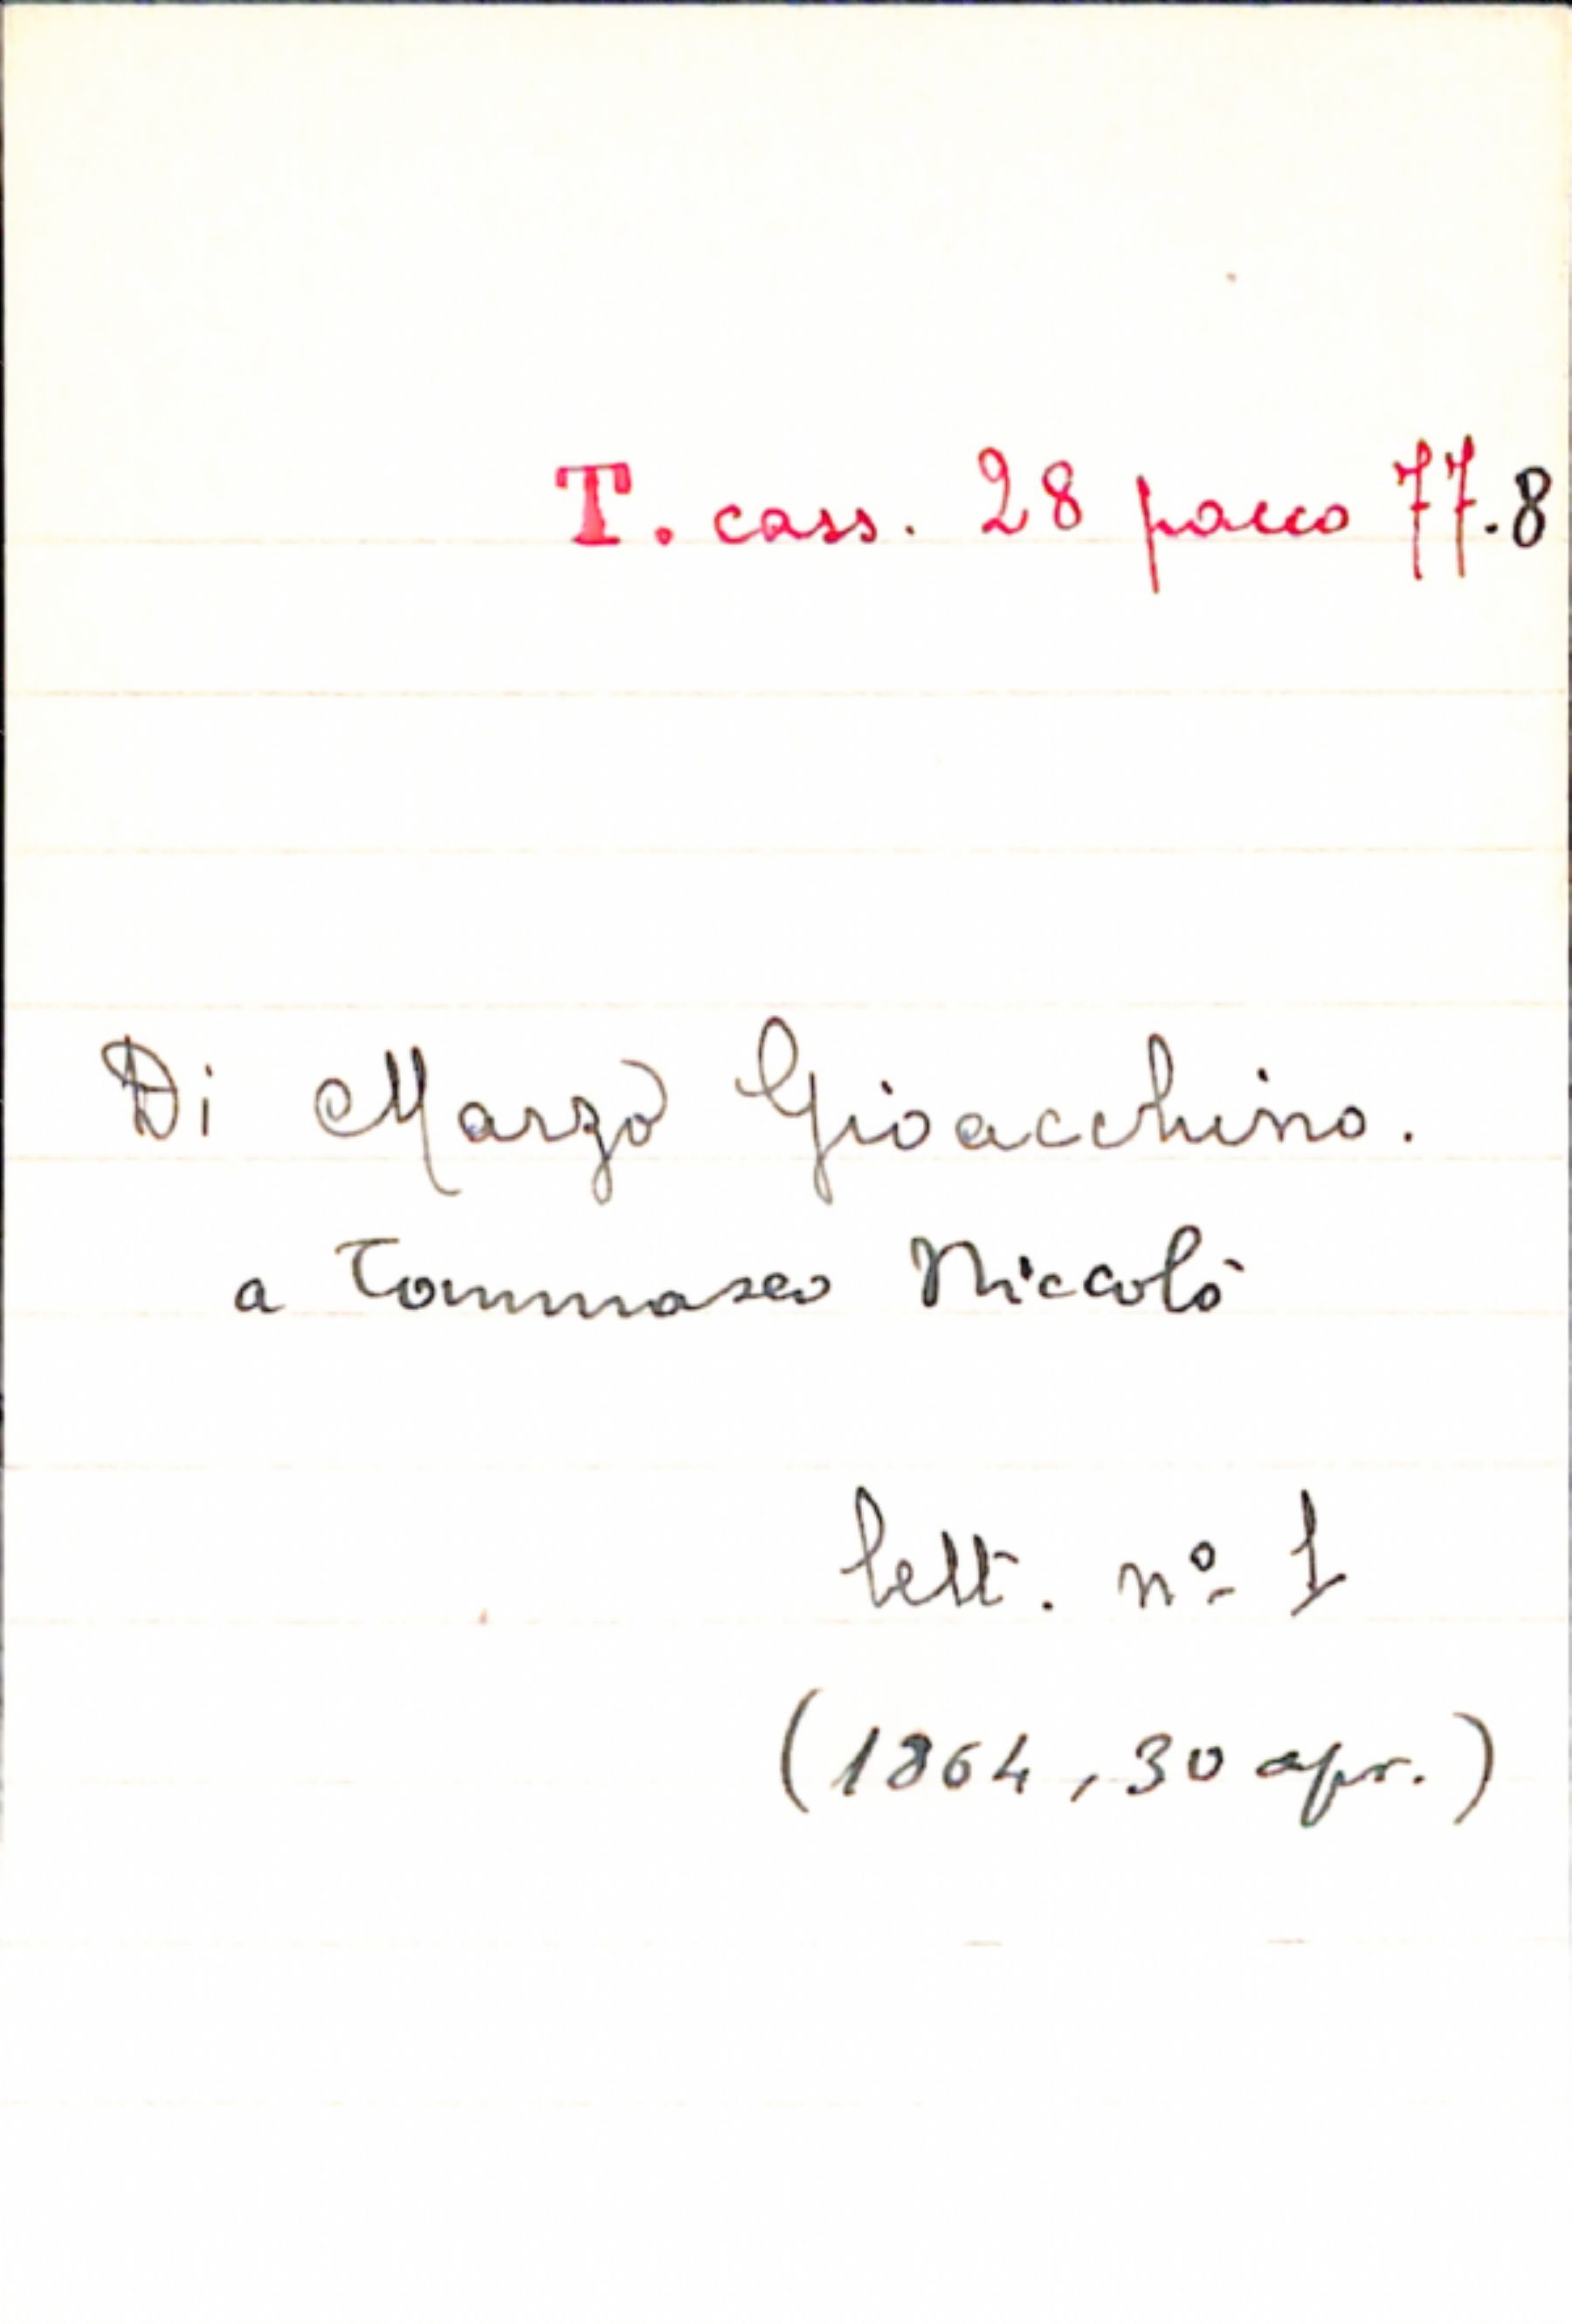 T. cass. 28 pacco 77.8
Di Marzo Gioacchino.
a Tommaseo Niccolò
lett. nº 1
(1864, 30 apr.)